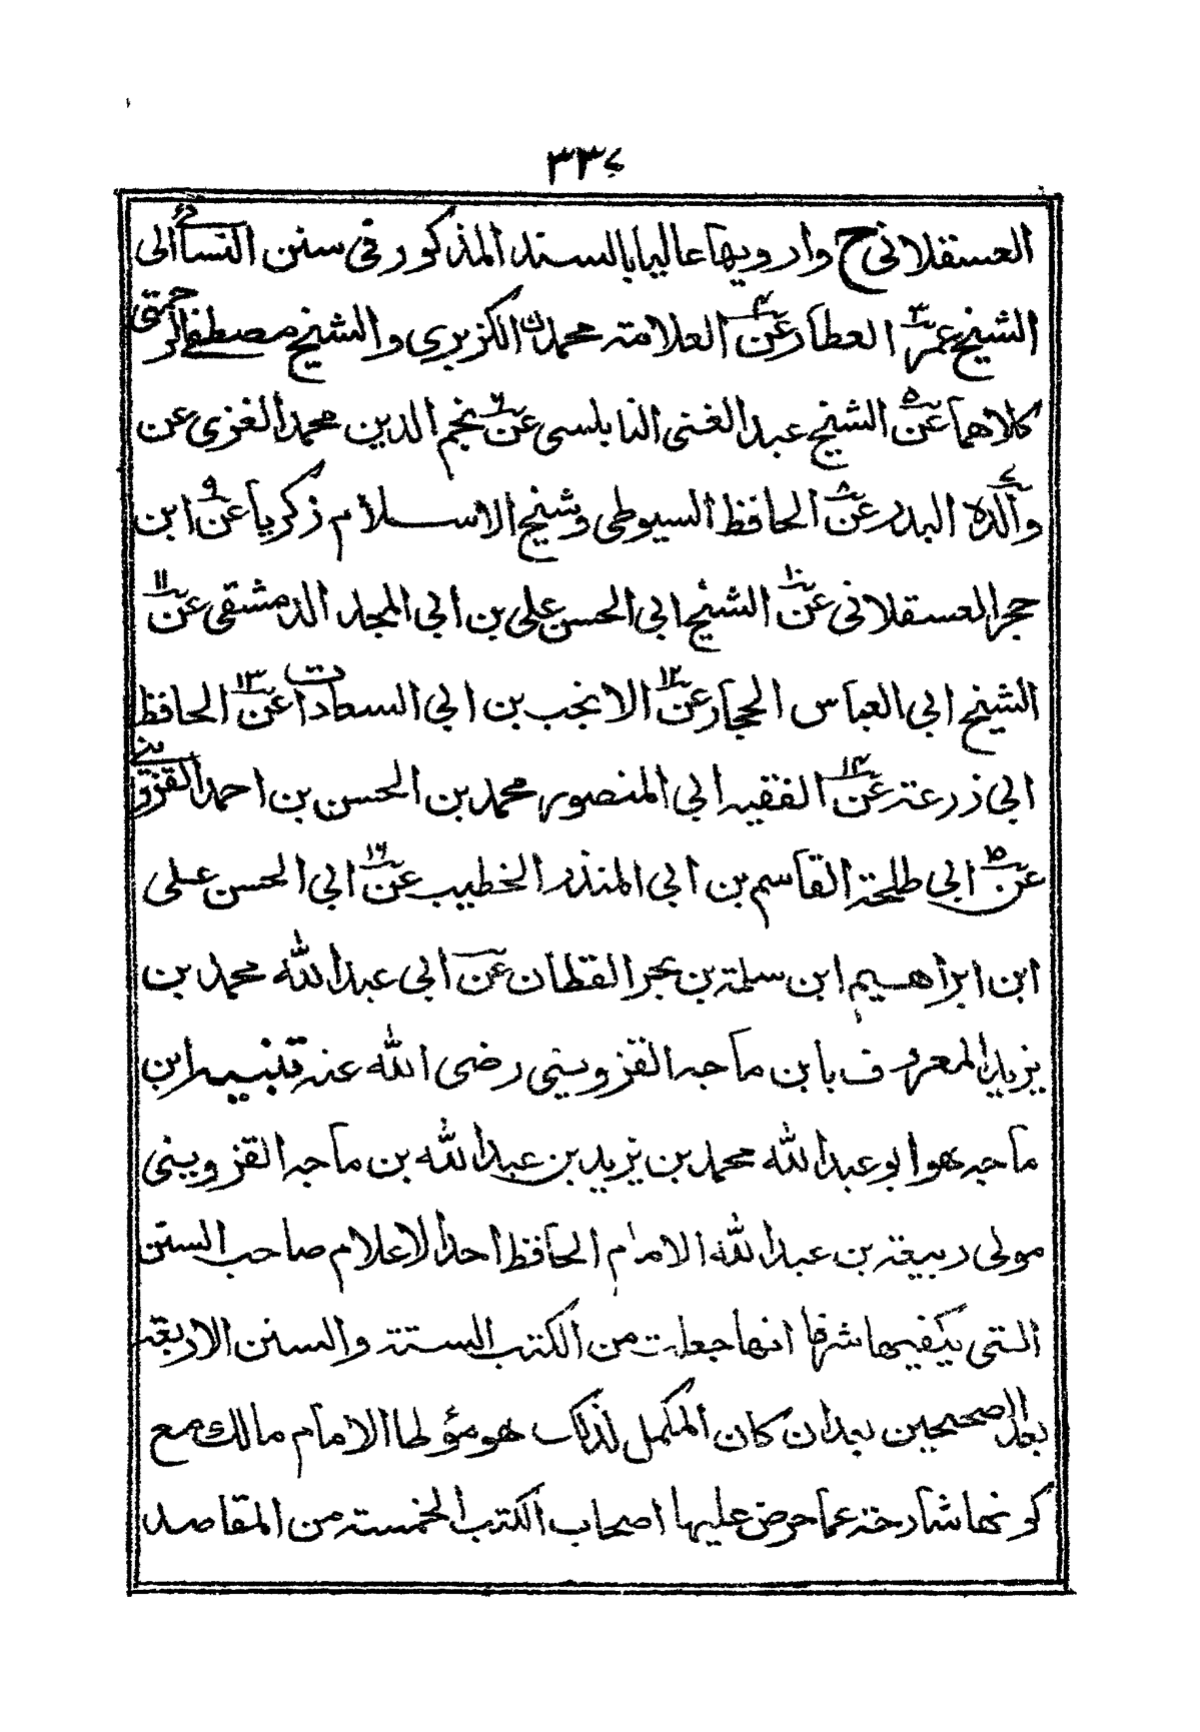 ٣٣٤
العسقلاني ح وارويها عاليا بالسند المذكور في سنن النسائي الى
الشيخ عمر٣ العطار عن٤ العلامة محمد الكزبري والشيخ مصطفى الرحمتي
كلاهما عن٥ الشيخ عبد الغني النابلسي عن٦ نجم الدين محمد الغزي عن
والده٧ البدر عن٨ الحافظ السيوطي وشيخ الاسلام زكريا عن٩ ابن
حجر العسقلاني عن١٠ الشيخ ابي الحسن علي بن ابي المجد الدمشقي عن١١
الشيخ ابي العباس الحجار عن١٢ الانجب بن ابي السعادات عن١٣ الحافظ
ابي زرعة عن١٤ الفقيه ابي المنصور محمد بن الحسن بن احمد القزويني
عن١٥ ابي طلحة القاسم بن ابي المنذر الخطيب عن١٦ ابي الحسن علي
ابن ابراهيم ابن سلمة بن بحر القطان عن ابي عبد الله محمد بن
يزيد المعروف بابن ماجه القزويني رضى الله عنه تنبيه ابن
ماجه هو ابو عبد الله محمد بن يزيد بن عبد الله بن ماجه القزويني
مولى ربيعة بن عبد الله الامام الحافظ احد الاعلام صاحب السنن
التي يكفيها شرفا انها جعلت من الكتب الستة والسنن الاربعة
بعد الصحيحين بعد ان كان المكمل لذلك هو مؤطا الامام مالك مع
كونها شارخة عما حرض عليها اصحاب الكتب الخمسة من المقاصد